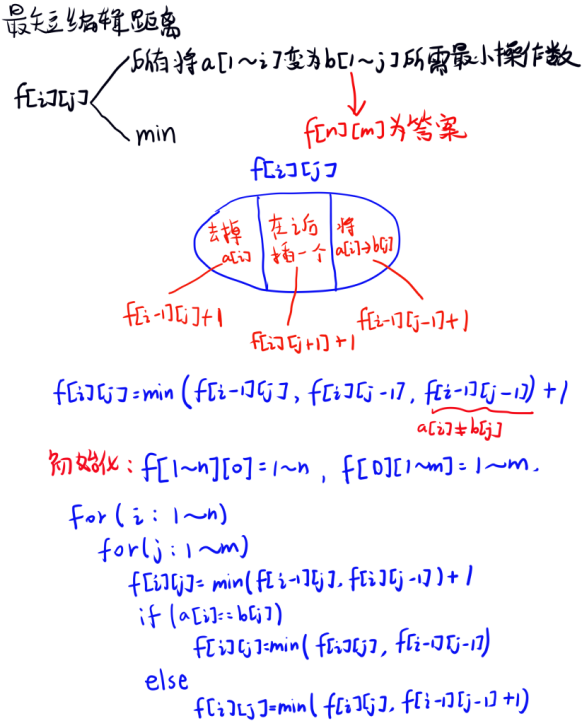 最短编辑距离
所有将a[1~i]变为b[1~j]所需最小操作数
f[i][j]
min
f[n][m]为答案
f[i][j]
去掉 a[i]
在i后 插一个
将 a[i]→b[j]
f[i-1][j]+1
f[i][j+1]+1
f[i-1][j-1]+1
f[i][j]=min(f[i-1][j], f[i][j-1], f[i-1][j-1])+1
a[i]≠b[j]
初始化: f[1~n][0]=1~n, f[0][1~m]=1~m.
for(i:1~n)
for(j:1~m)
f[i][j]=min(f[i-1][j], f[i][j-1])+1
if(a[i]==b[j])
f[i][j]=min(f[i][j], f[i-1][j-1])
else
f[i][j]=min(f[i][j], f[i-1][j-1]+1)